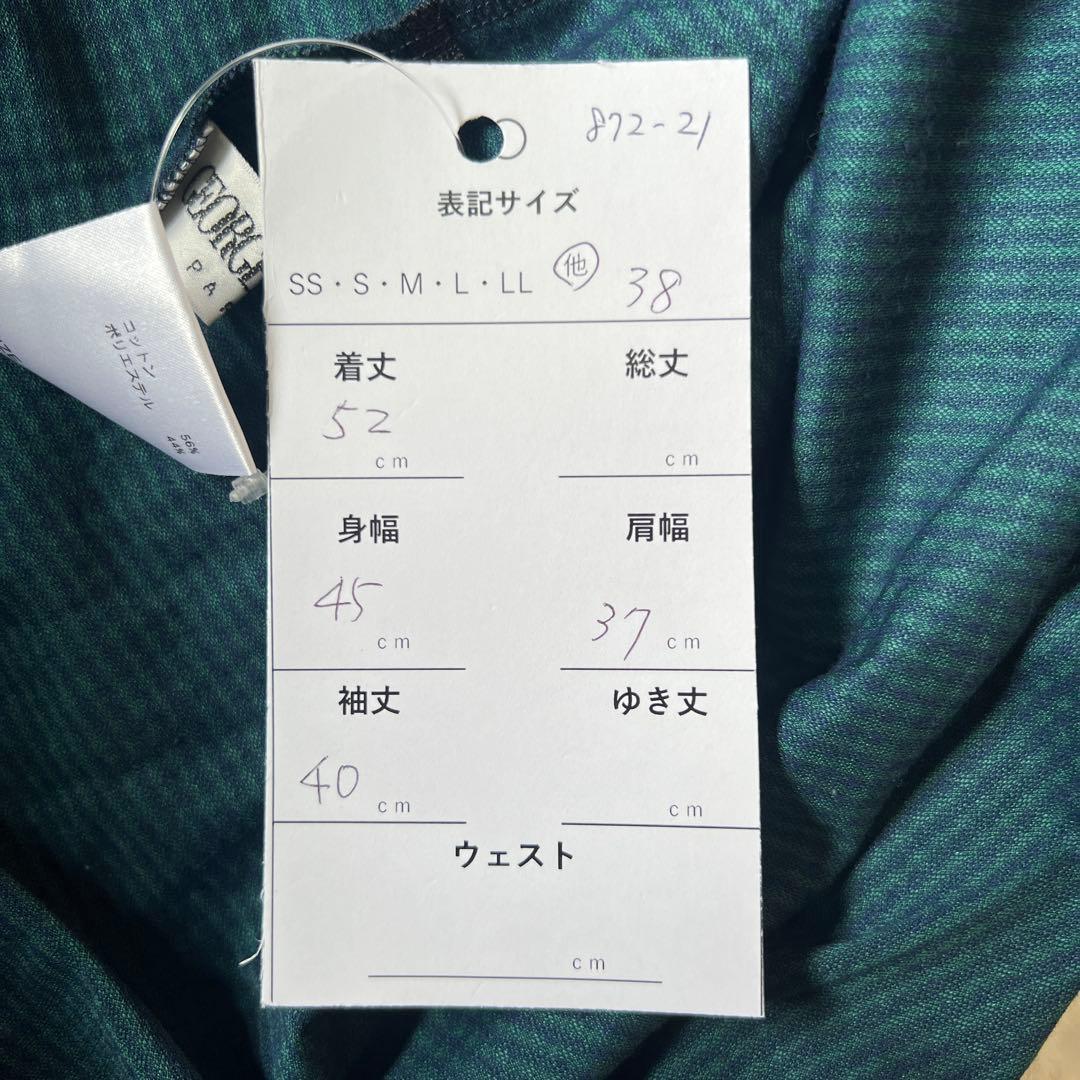 872-21
表記サイズ
SS・S・M・L・LL 他 38
着丈
52 cm
総丈
cm
身幅
45 cm
肩幅
37 cm
袖丈
40 cm
ゆき丈
cm
ウェスト
cm
コットン 56%
ポリエステル 44%